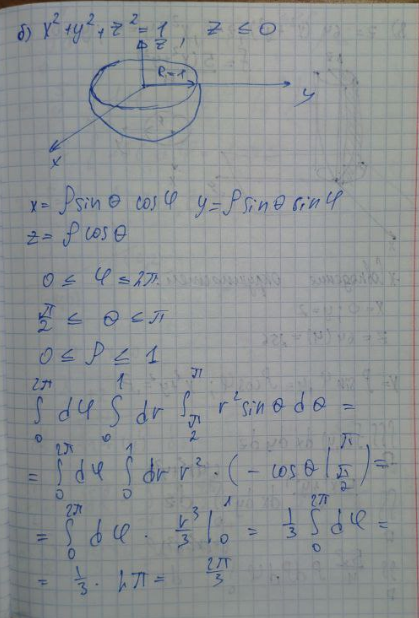 б) x² + y² + z² = 1, z ≤ 0
z
R=1
y
x
x = ρ sinθ cosφ y = ρ sinθ sinφ
z = ρ cosθ
0 ≤ φ ≤ 2π
π/2 ≤ θ ≤ π
0 ≤ ρ ≤ 1
∫₀^{2π} dφ ∫₀^1 dr ∫_{π/2}^π r² sinθ dθ =
= ∫₀^{2π} dφ ∫₀^1 dr r² · (− cosθ |_{π/2}^π) =
= ∫₀^{2π} dφ · r³/3 |₀^1 = 1/3 ∫₀^{2π} dφ =
= 1/3 · 2π = 2π/3